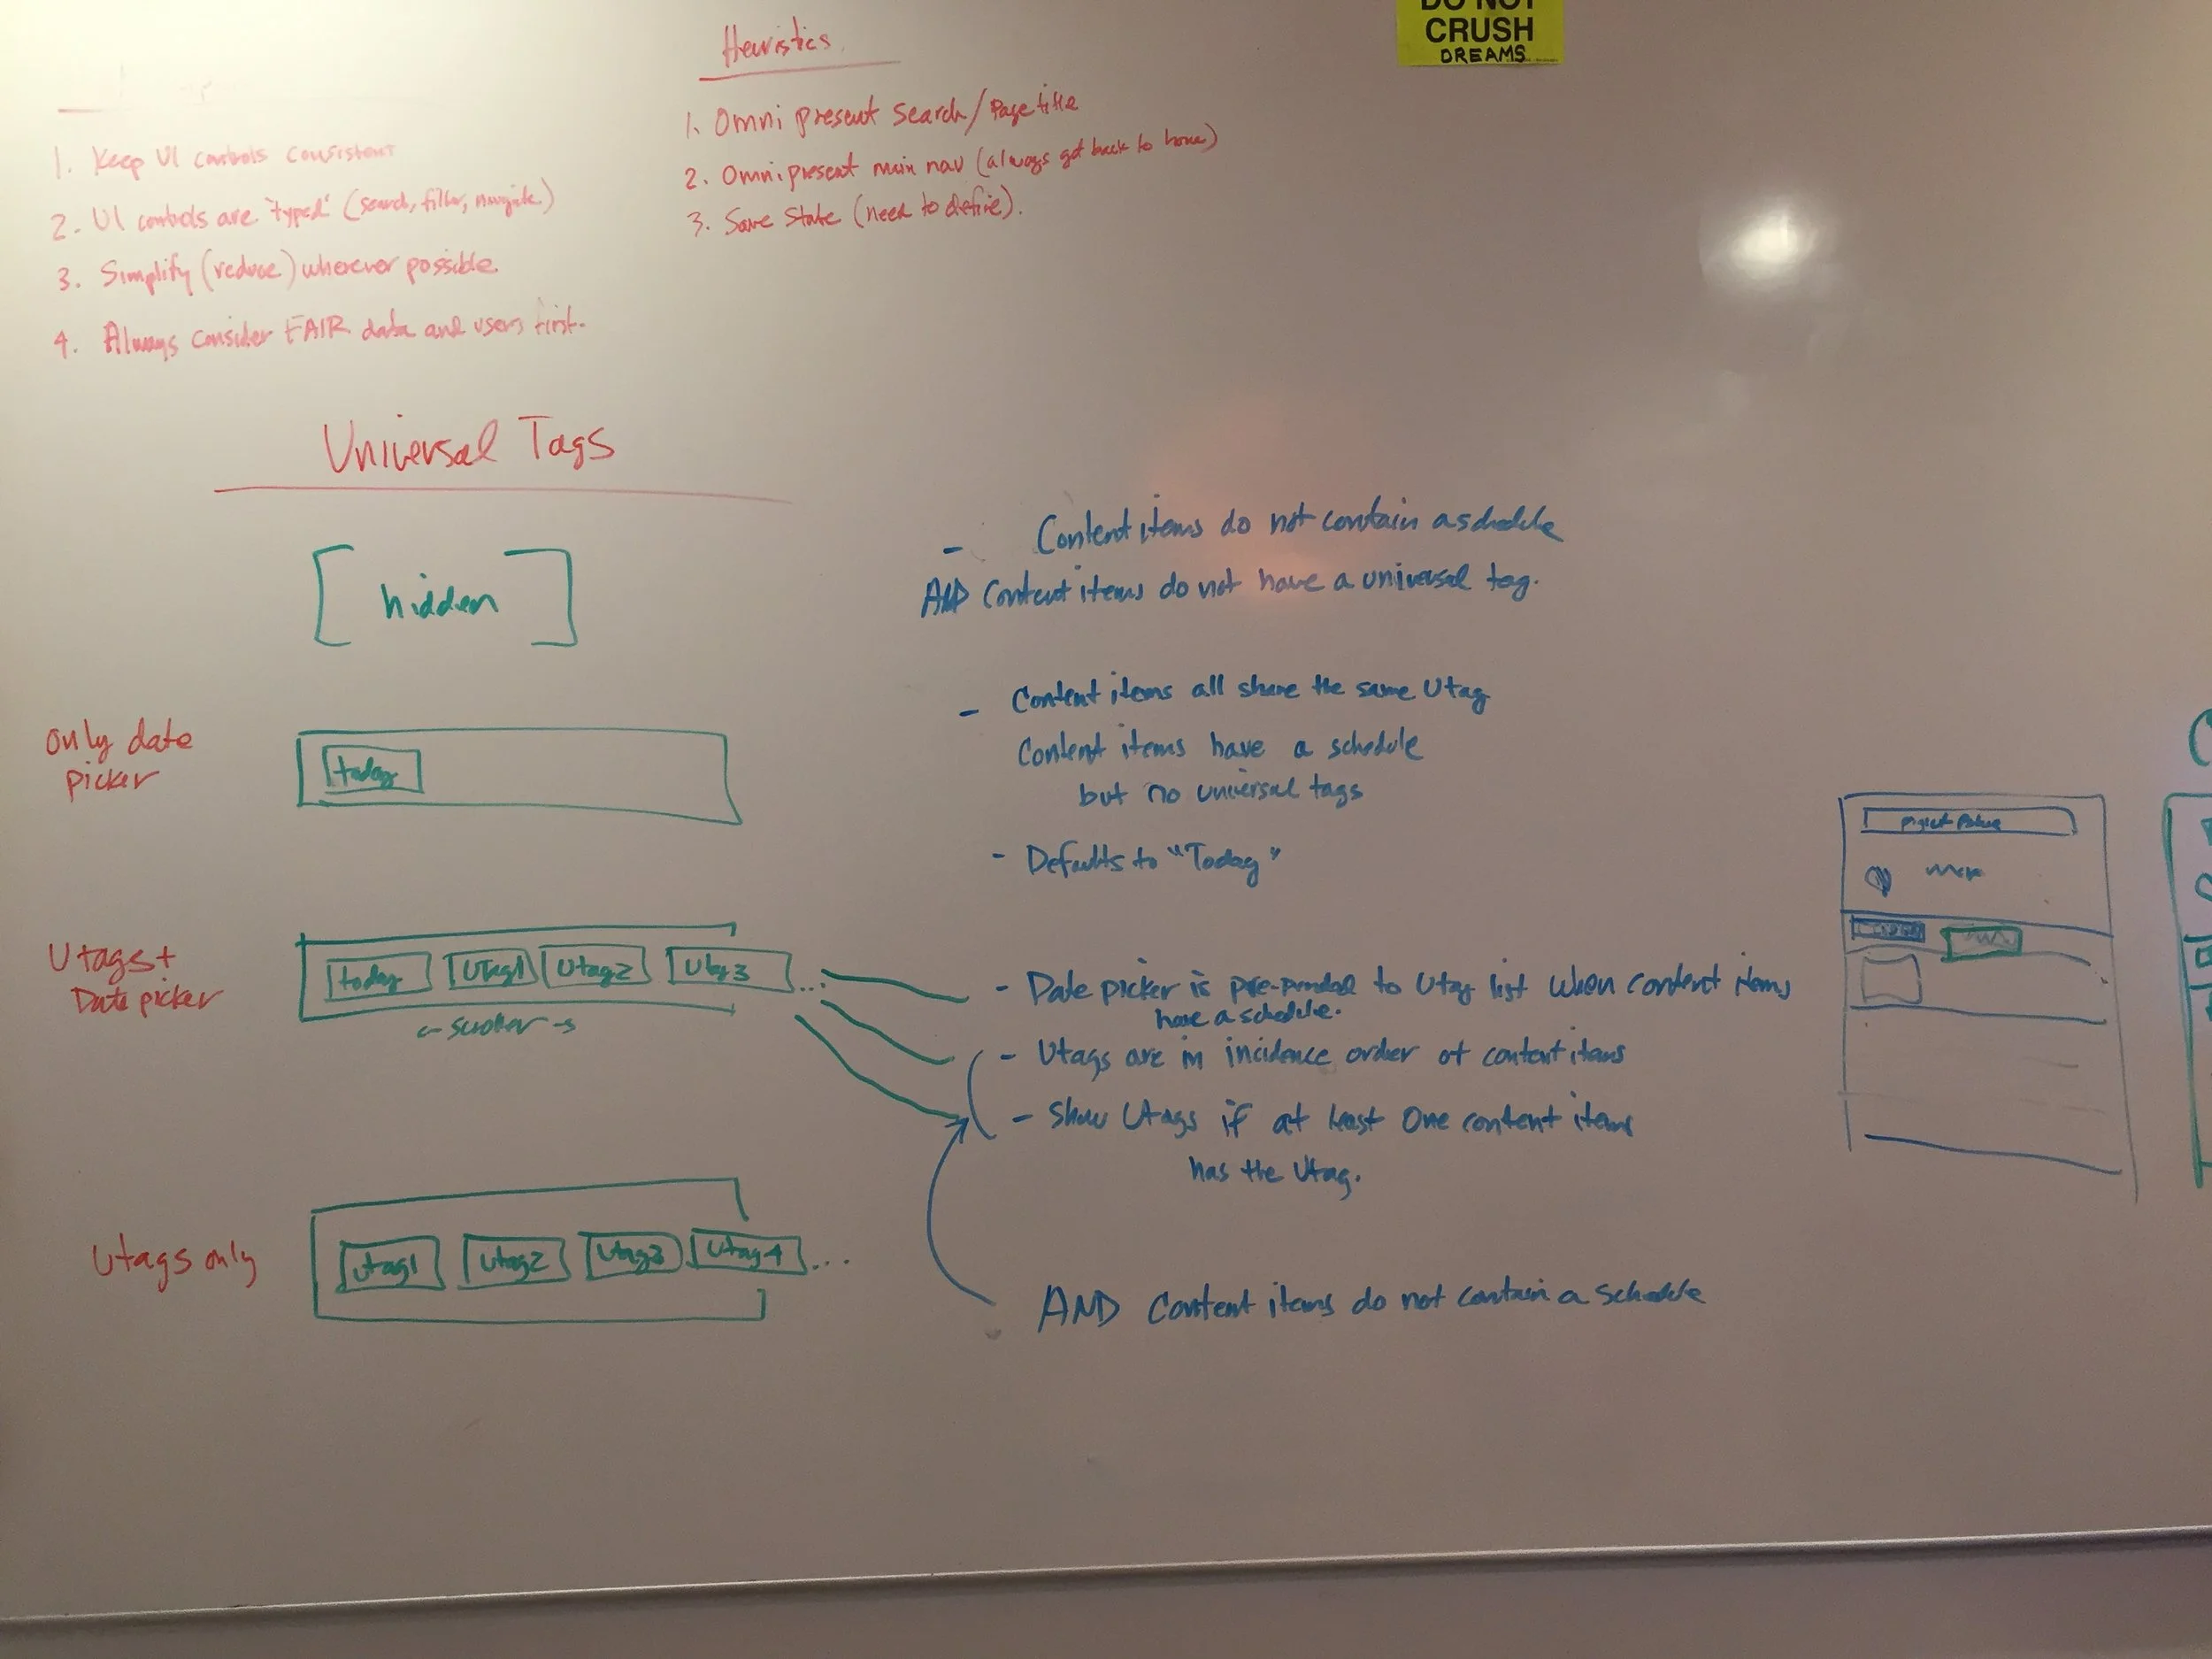 DO NOT
CRUSH
DREAMS
1. Keep UI controls consistent
2. UI controls are "typed" (search, filter, navigate.)
3. Simplify (reduce) wherever possible.
4. Always consider FAIR data and users first.
Heuristics
1. Omni present search/Page title
2. Omnipresent main nav (always get back to home)
3. Save State (need to define).
Universal Tags
[hidden]
- Content items do not contain a schedule
AND Content items do not have a universal tag.
only date
picker
today
- Content items all share the same Utag
Content items have a schedule
but no universal tags
- Defaults to "Today"
Utags +
Date picker
today Utag1 Utag2 Utag3 ...
- Date picker is pre-pended to Utag list when content items
have a schedule.
- Utags are in incidence order of content items
- Show Utags if at least one content items
has the Utag.
Utags only
Utag1 Utag2 Utag3 Utag4 ...
AND Content items do not contain a schedule